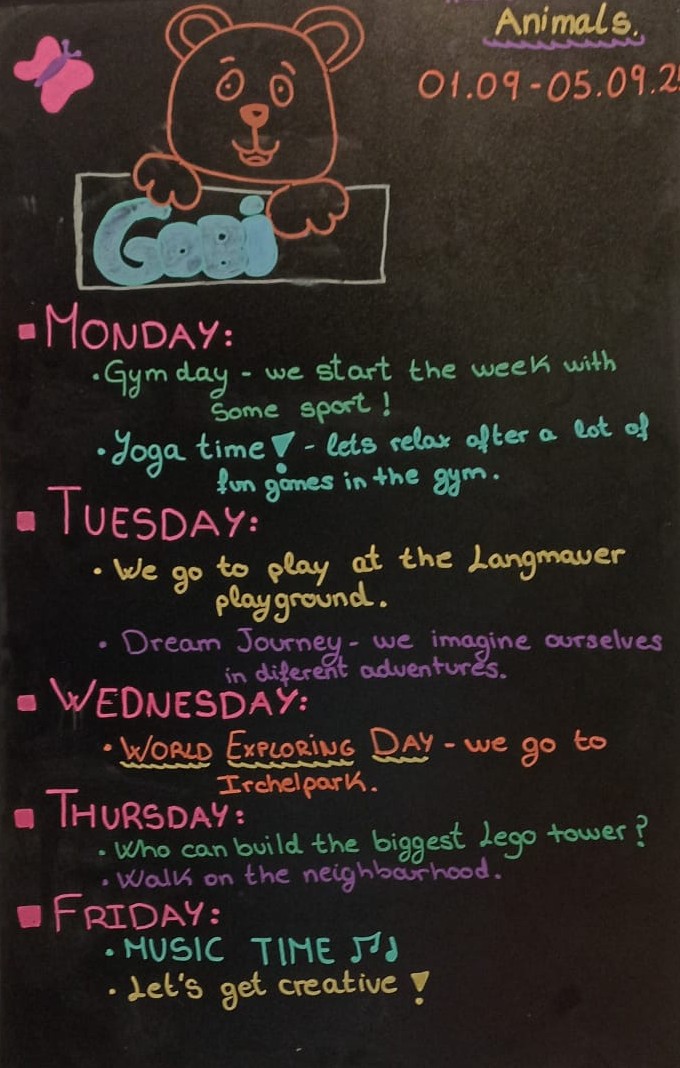 Animals.
01.09-05.09.2
GOBi
MONDAY:
• Gym day - we start the week with
some sport!
• Yoga time! - lets relax after a lot of
fun games in the gym.
TUESDAY:
• We go to play at the Langmauer
playground.
• Dream Journey - we imagine ourselves
in diferent adventures.
WEDNESDAY:
• WORLD EXPLORING DAY - we go to
Irchelpark.
THURSDAY:
• Who can build the biggest Lego tower?
• Walk on the neighbourhood.
FRIDAY:
• MUSIC TIME ♫♩
• Let's get creative!